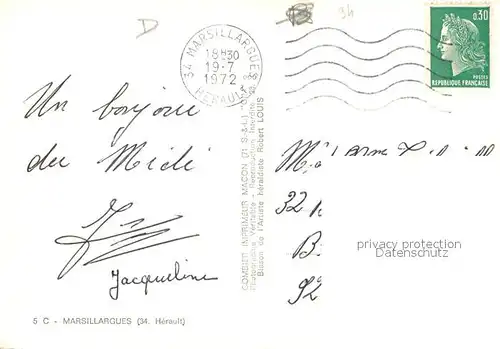 D
34
34 MARSILLARGUES
18H30
19-7
1972
HERAULT
0,30
POSTES
REPUBLIQUE FRANÇAISE
Un bonjour
du Midi
Jacqueline
5 C - MARSILLARGUES (34. Hérault)
COMBIER IMPRIMEUR MACON (71 S.-&-L.)
Photographie Véritable - Reproduction Interdite
Blason de l'Artiste héraldiste Robert LOUIS
32
B
92
privacy protection
Datenschutz